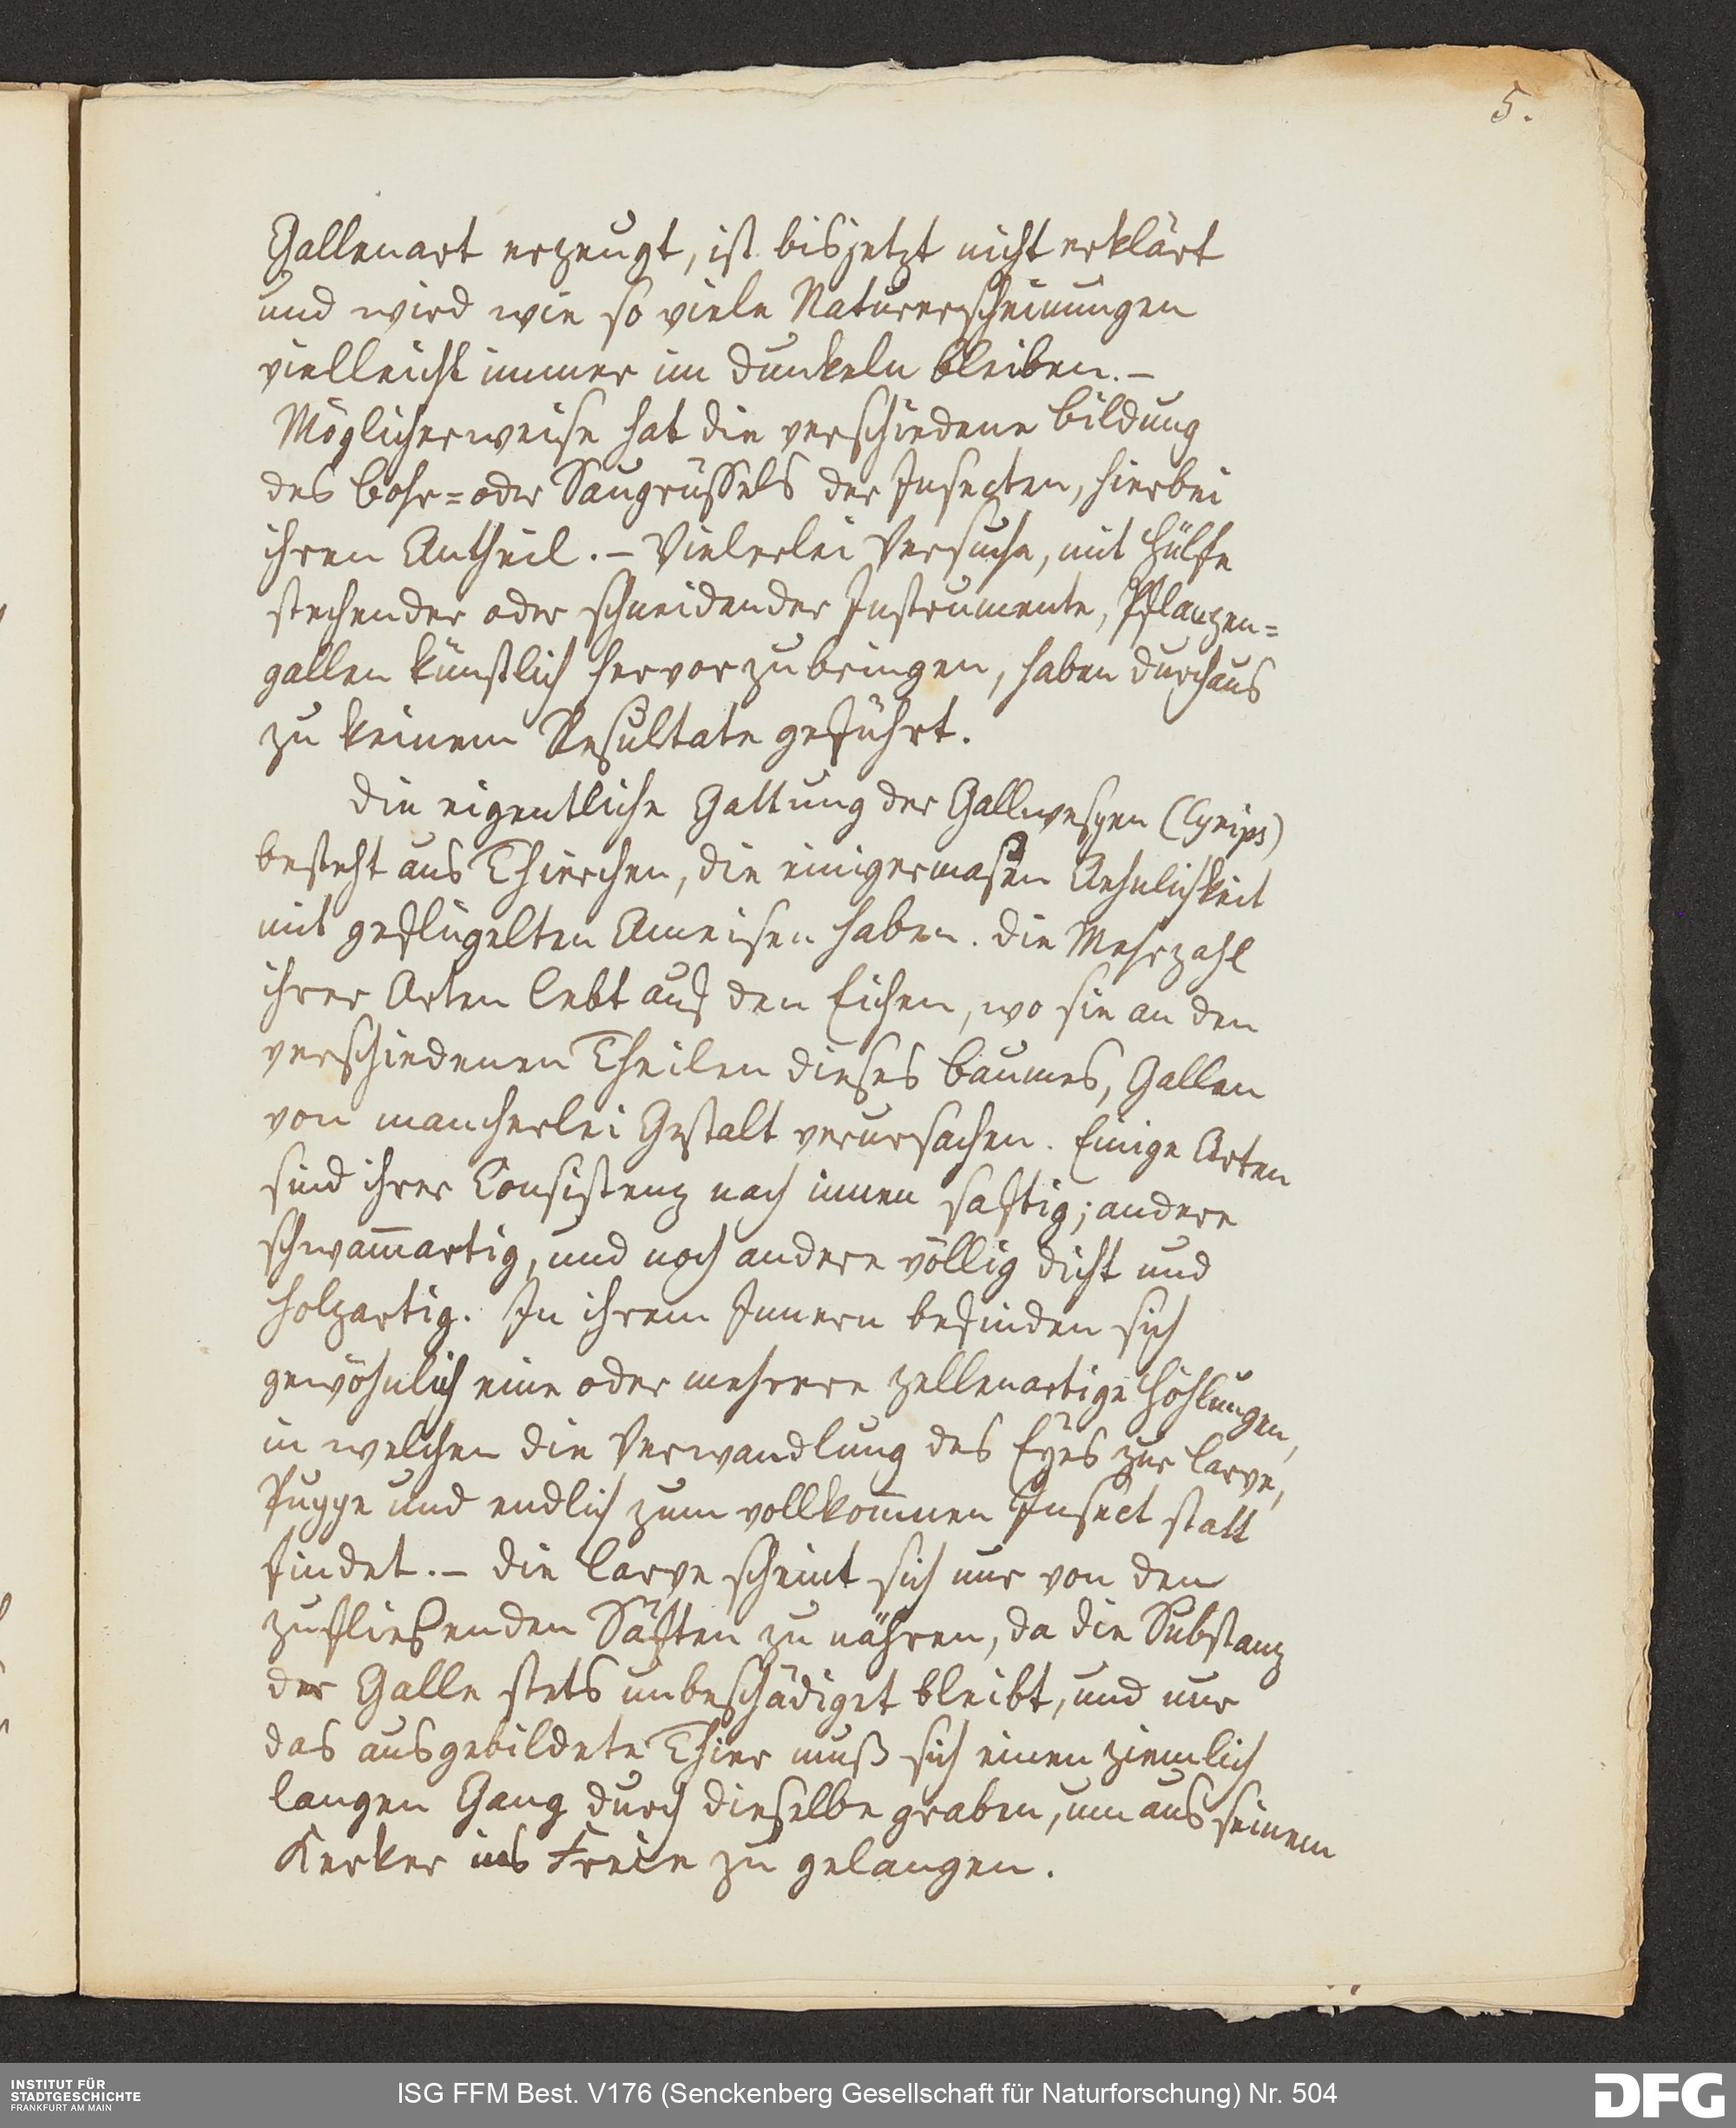 5.
Gallenart erzeugt, ist bisjetzt nicht erklärt
und wird wie so viele Naturerscheinungen
vielleicht immer im Dunkeln bleiben. –
Möglicherweise hat die verschiedene Bildung
des Bohr= oder Saugrüssels der Insecten, hierbei
ihren Antheil. – Vielerlei Versuche, mit Hülfe
stechender oder schneidender Instrumente, Pflanzen=
gallen künstlich hervorzubringen, haben durchaus
zu keinem Resultate geführt.
Die eigentliche Gattung der Gallwespen (Cynips)
besteht aus Thierchen, die einigermasen Aehnlichkeit
mit geflügelten Ameisen haben. Die Mehrzahl
ihrer Arten lebt auf den Eichen, wo sie an den
verschiedenen Theilen dieses Baumes, Gallen
von mancherlei Gestalt verursachen. Einige Arten
sind ihrer Consistenz nach innen saftig; andere
schwam̅artig, und noch andere völlig dicht und
holzartig. In ihrem Innern befinden sich
gewöhnlich eine oder mehrere zellenartige Höhlungen,
in welchen die Verwandlung des Eyes zur Larve,
Puppe und endlich zum vollkom̅nen Insect statt
findet. – Die Larve scheint sich nur von den
zufließenden Säften zu nähren, da die Substanz
der Galle stets unbeschädiget bleibt, und nur
das ausgebildete Thier muß sich einen ziemlich
langen Gang durch dieselbe graben, um aus seinem
Kerker ins Freie zu gelangen.
INSTITUT FÜR
STADTGESCHICHTE
FRANKFURT AM MAIN
ISG FFM Best. V176 (Senckenberg Gesellschaft für Naturforschung) Nr. 504
DFG